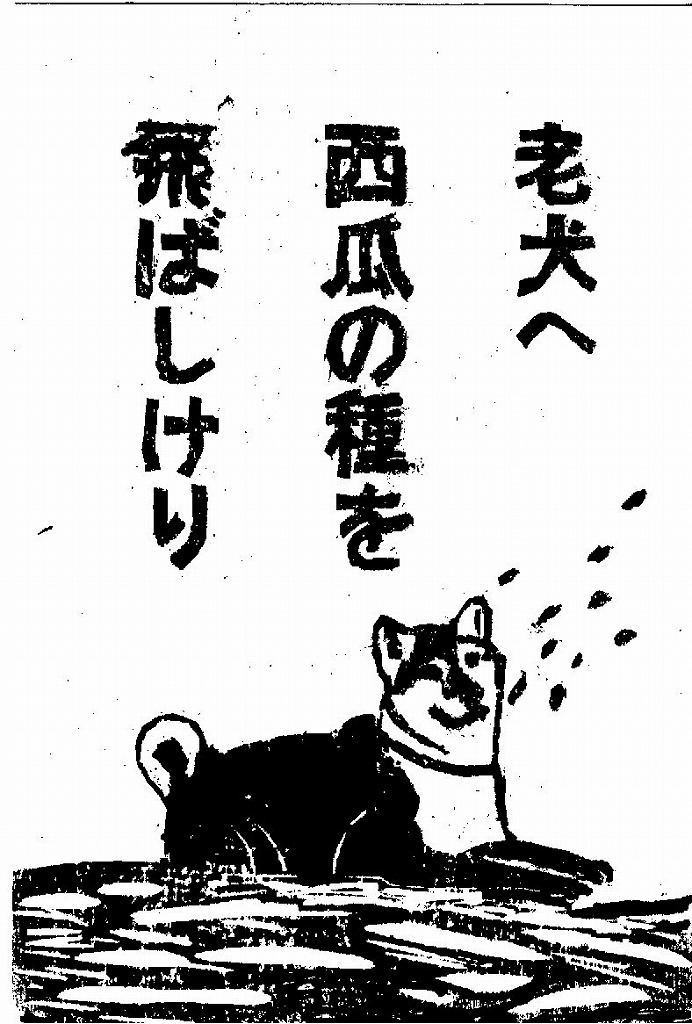 老犬へ
西瓜の種を
飛ばしけり